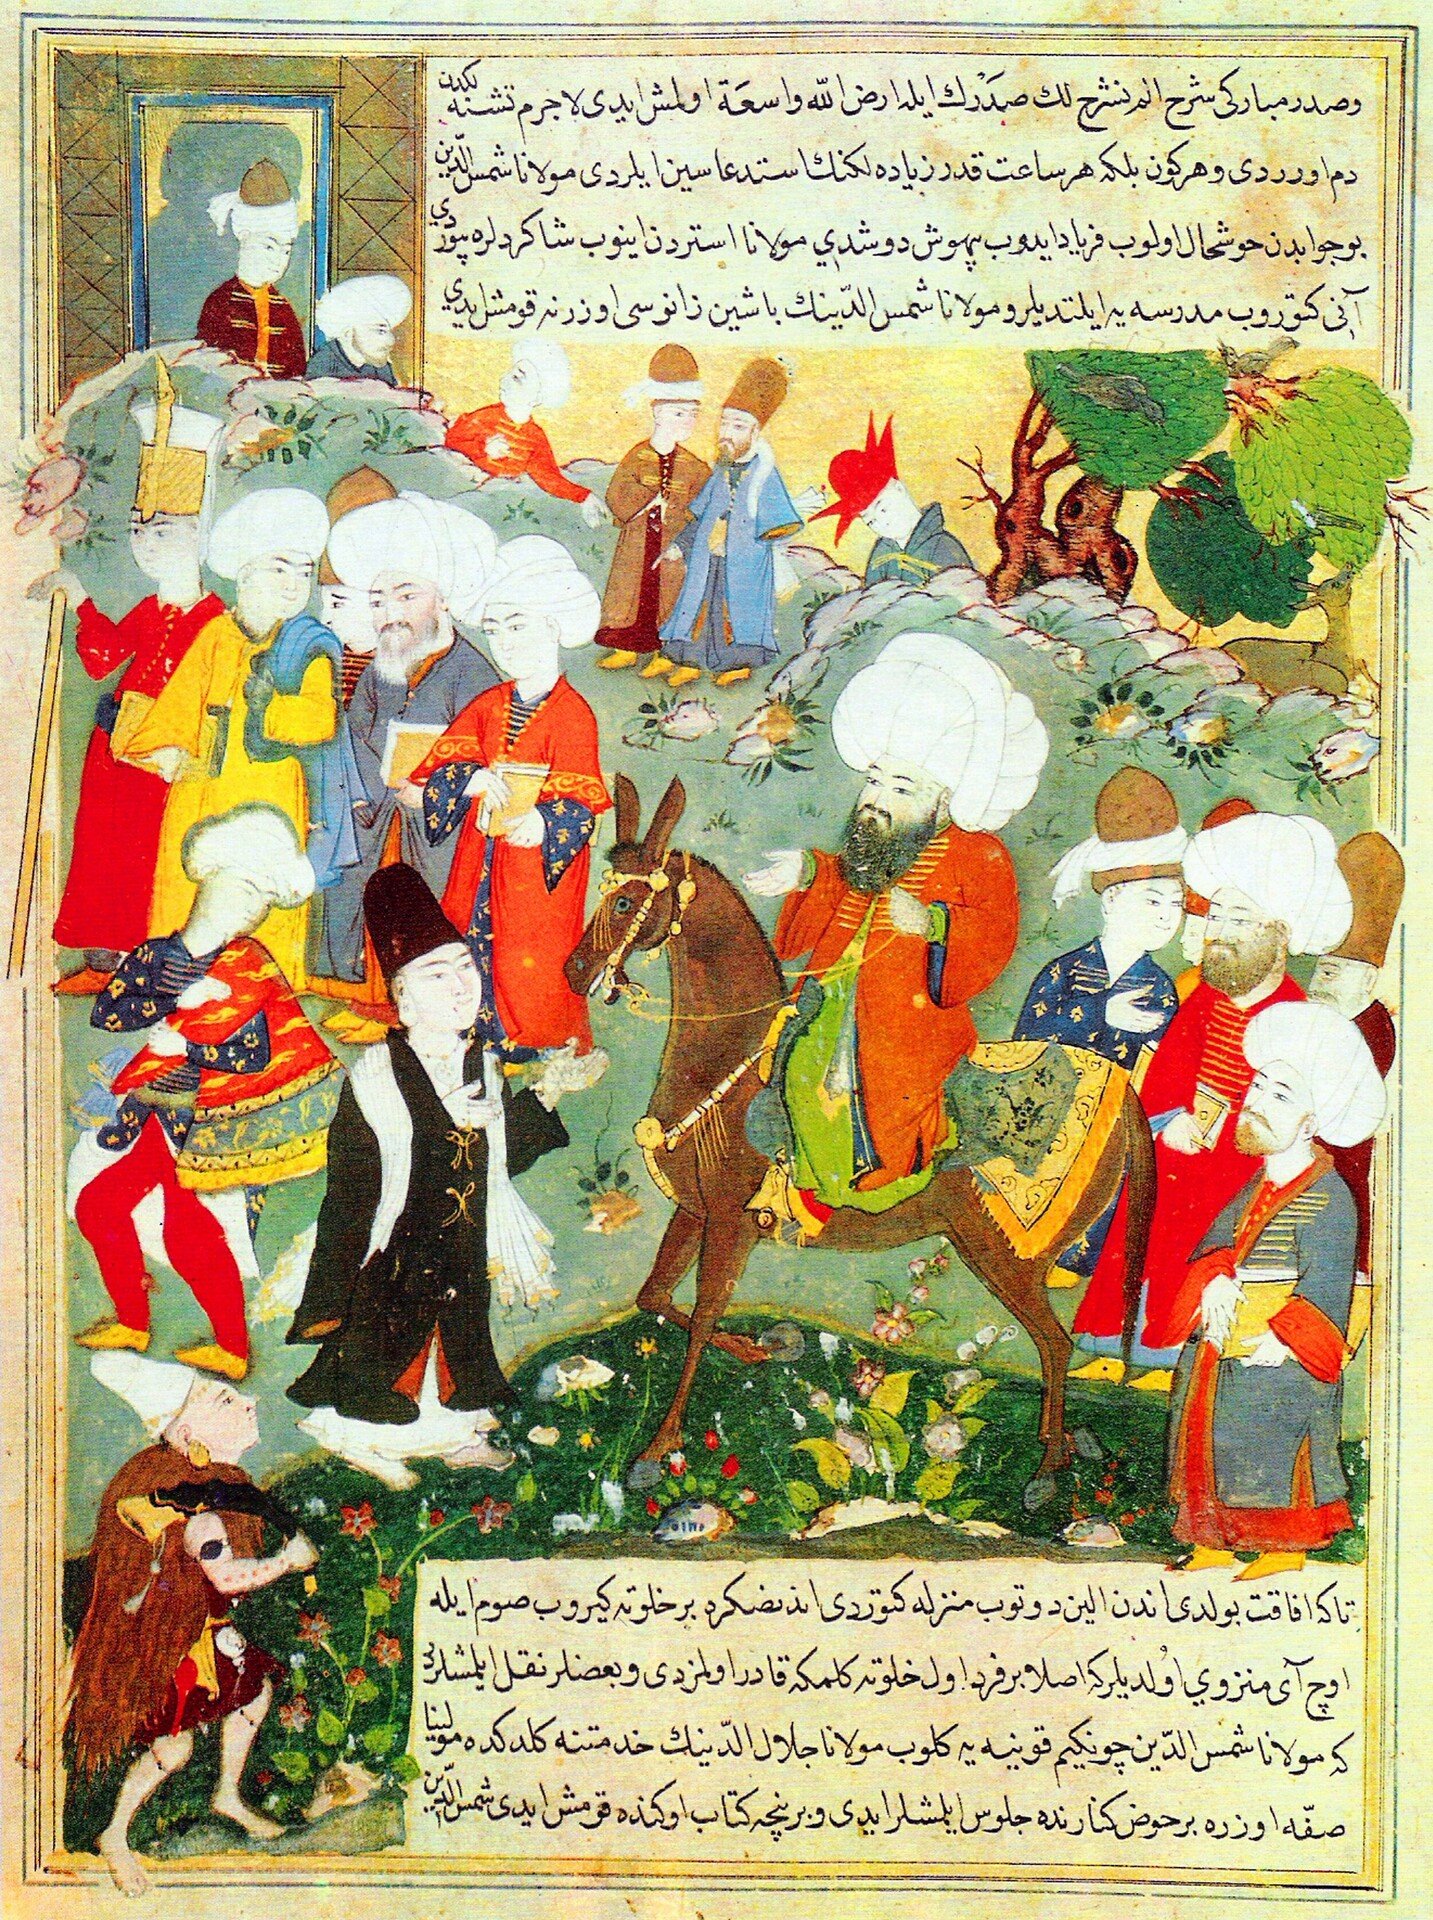 وصدر مباركى شرح الم نشرح لك صدرك ايله ارض الله واسعة اولمش ايدى لاجرم تشنه لكدن
دم اورردى وهركون بلكه هر ساعت قدر زياده لكنك استدعاسين ايلردى مولانا شمس الدّين
بو جوابدن خوشحال اولوب فرياد ايدوب بيهوش دوشدي مولانا استردن اينوب شاكردلره بيوردي
آنى كتوروب مدرسه يه ايلتديلر و مولانا شمس الدّينك باشين زانوسى اوزرنه قومشلايدي
تاكه افاقت بولدى اندن الين دوتوب منزله كتوردى اندنصكره بر خلوته كيروب صوم ايله
اوچ آى منزوي اولديلركه اصلا بر فرد اول خلوته كلمكه قادر اولمزدى وبعضلر نقل ايلمشلردر
كه مولانا شمس الدّين چونكيم قونيه يه كلوب مولانا جلال الدّينك خدمتنه كلدكده مولينا
صفّه اوزره بر حوض كنارنده جلوس ايلمشلر ايدى وبر نيچه كتاب اوكنده قومش ايدى شمس الدّين